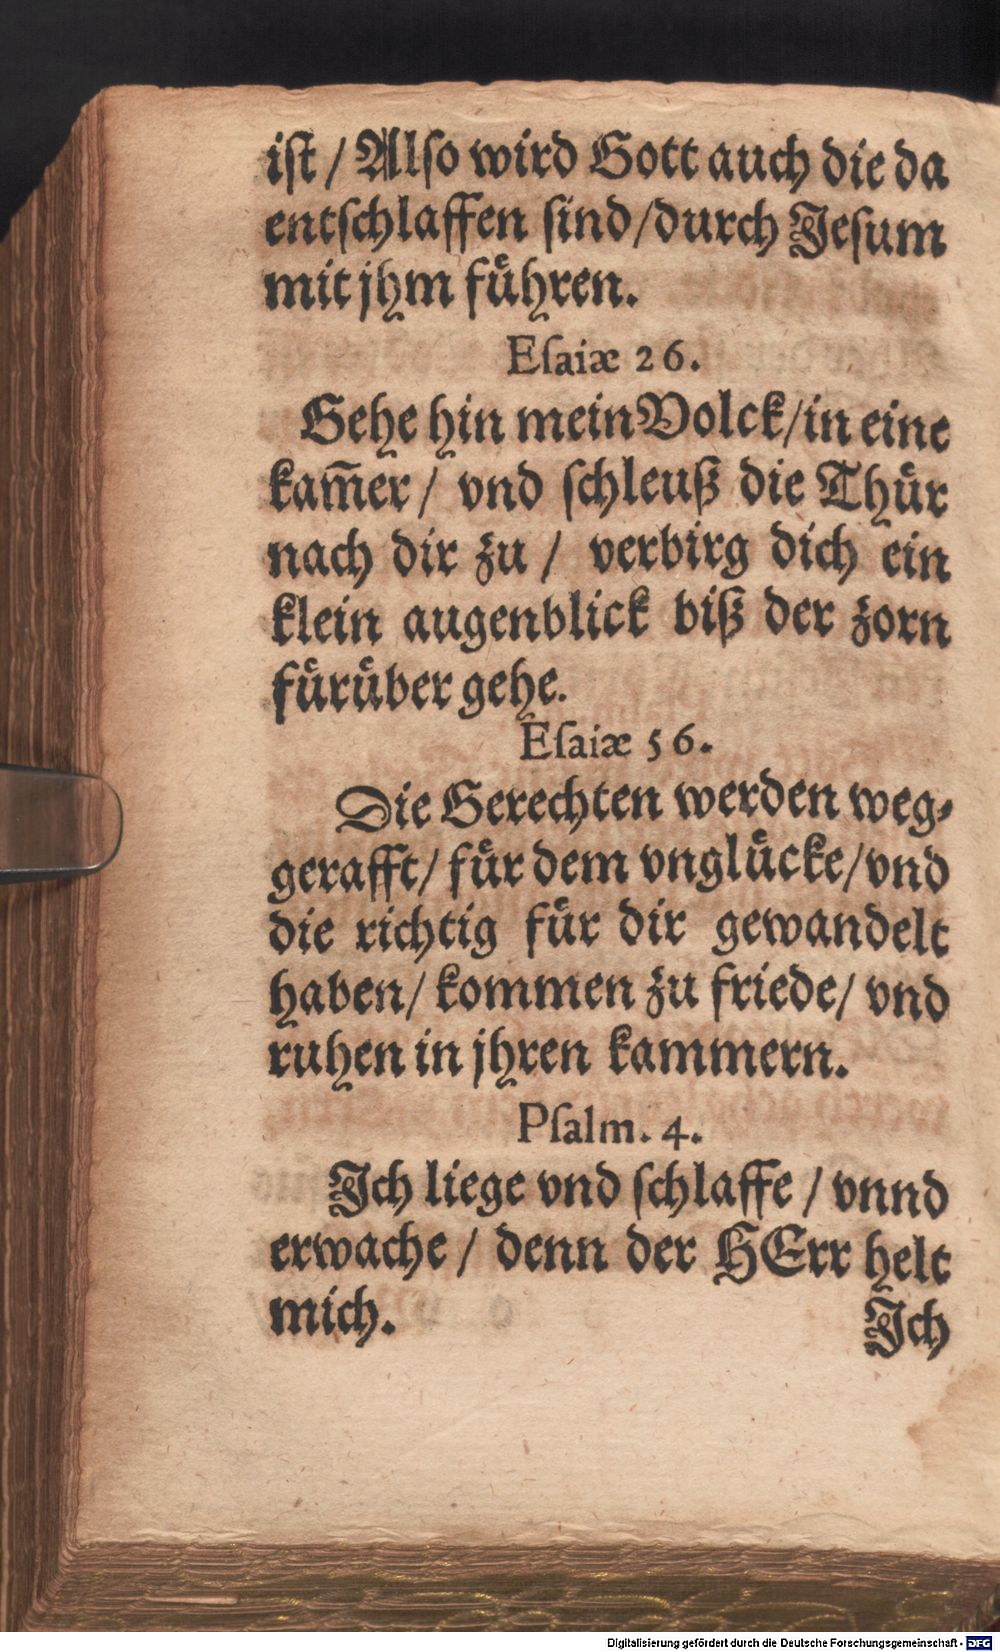 ist / Also wird Gott auch die da
entschlaffen sind/durch Jesum
mit jhm fuͤhren.
Eſaiæ 26.
Gehe hin mein Volck/in eine
kam̃er / vnd ſchleuß die Thuͤr
nach dir zu / verbirg dich ein
klein augenblick biß der zorn
fuͤruͤber gehe.
Eſaiæ 56.
Die Gerechten werden weg⸗
gerafft/ fuͤr dem vngluͤcke/vnd
die richtig fuͤr dir gewandelt
haben/ kommen zu friede/ vnd
ruhen in jhren kammern.
Pſalm. 4.
Jch liege vnd ſchlaffe / vnnd
erwache / denn der HErr helt
mich.
Jch
Digitalisierung gefördert durch die Deutsche Forschungsgemeinschaft - DFG